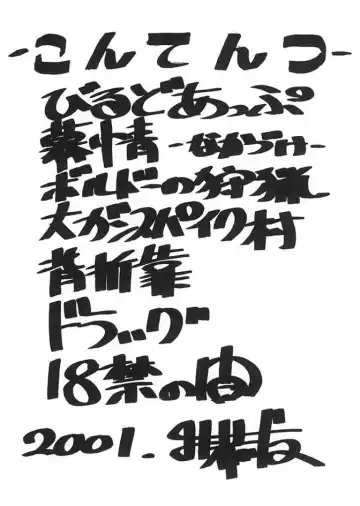 -こんてんつ-
びるどあっぷ
慕情-なからけ-
ボルドーの狩猟
大ガンスパイク村
背折靠
ドラッグ
18禁の間
2001.